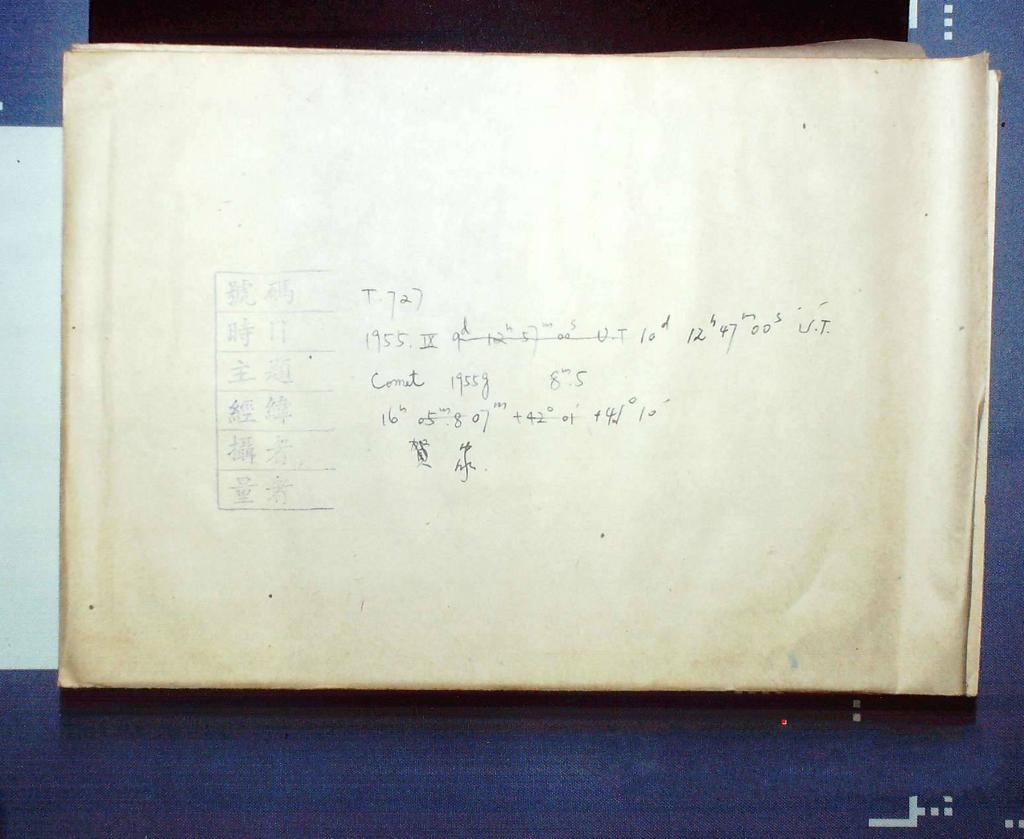 號碼 T.727
時日 1955. IX 9ᵈ 12ʰ 57ᵐ 00ˢ U.T 10ᵈ 12ʰ 47ᵐ 00ˢ U.T.
主題 Comet 1955g 8ᵐ.5
經緯 16ʰ 05ᵐ.8 07ᵐ +42° 01' +41° 10'
攝者 賀
量者